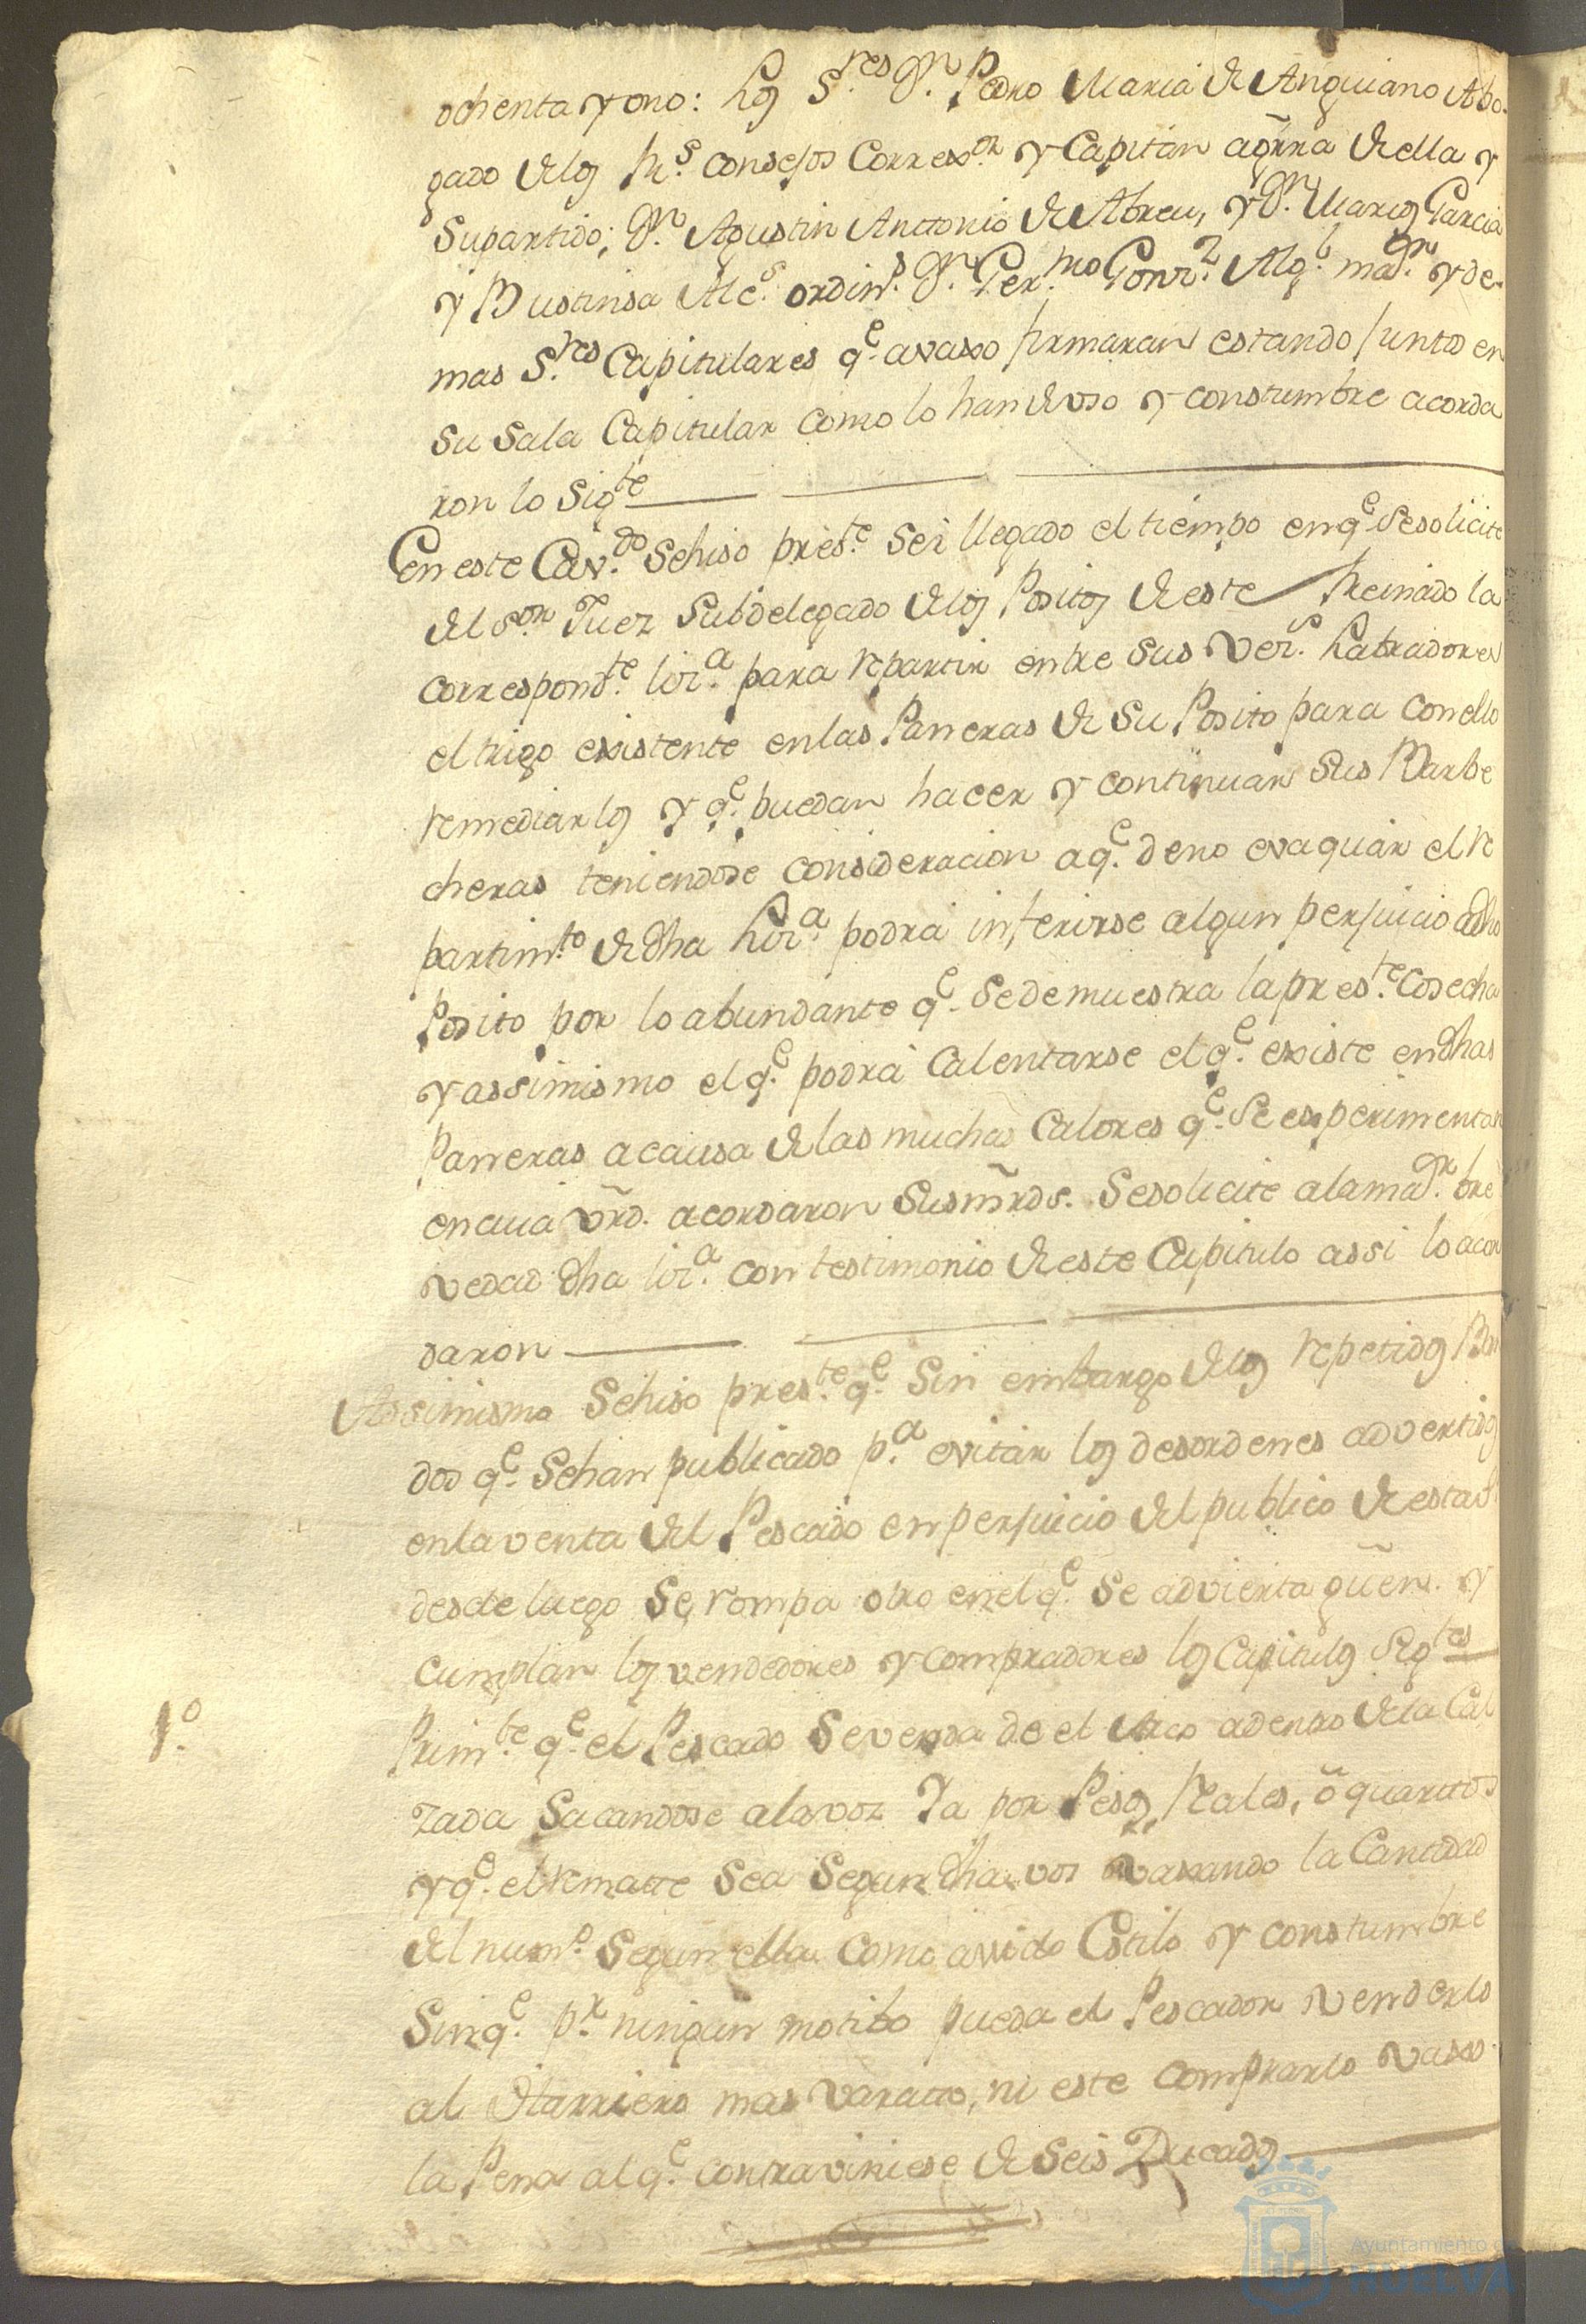 ochenta y ono: Los S.res D.n Pedro Maria de Anguiano Abo-
gado de los R.s consejos Correx.or y Capitan aGrra de ella y
Supartido; D.n Agustin Anttonio de Abreu, y D.n Marcos Garcia
y Bustinsa Alc.s ordin.s D.n Ger.mo Gonz.z Alg.l ma.or y de-
mas S.res Capitulares q.e avaxo firmaran estando juntos en
su Sala Capitular como lo han de vso y constumbre acorda
ron lo Sig.te
En este Cav.do Sehiso pres.te Ser llegado el tiempo enq.e Sesolicite
del S.or Juez Subdelegado de los Positos de este Reinado la
correspond.te liz.a para repartir entre sus vez.s Labradores
el trigo existente en las Paneras de Su Posito para con ello
remediarlos y q.e puedan hacer y continuar Sus Barbe
cheras teniendose consideracion aq.e deno evaquar el re
partim.to de dha Liz.a podrá inferirse algun perjuicio adho
Posito por lo abundante q.e Sedemuestra la pres.te Cosecha
y assimismo el q.e podrá Calentarse elq.e existe endhas
Paneras acausa de las muchas Calores q.e Se experimentan
encuia vrd. acordaron Susmrds. Sesolicite alama.or bre
vedad dha liz.a con testimonio de este Capitulo assi lo acor
daron
Assimismo Sehiso pres.te q.e Sin embargo de los repetidos Ban
dos q.e Sehan publicado p.a evitar los desordenes advertidos
enla venta del Pescado enperjuicio del publico de esta v.
desde luego Se rompa otro enelq.e Se advierta guën. y
cumplan los vendedores y compradores los Capitulos Sig.tes
1.o Prim.te q.e el Pescado Sevenda de el Arco adentro de la Cal
zada Sacandose alavoz Ya por Pesos, Reales, ó quarttos
y q.e elrematte Sea Segun dha voz vaxando la Cantidad
del num.o Segun ella como assido Estilo y constumbre
Sinq.e p.r ningun motibo pueda el Pescador venderlo
al Harriero mas varatto, ni este comprarlo vaxo
la Pena alq.e contraviniese de Seis Ducados
Ayuntamiento de
HUELVA